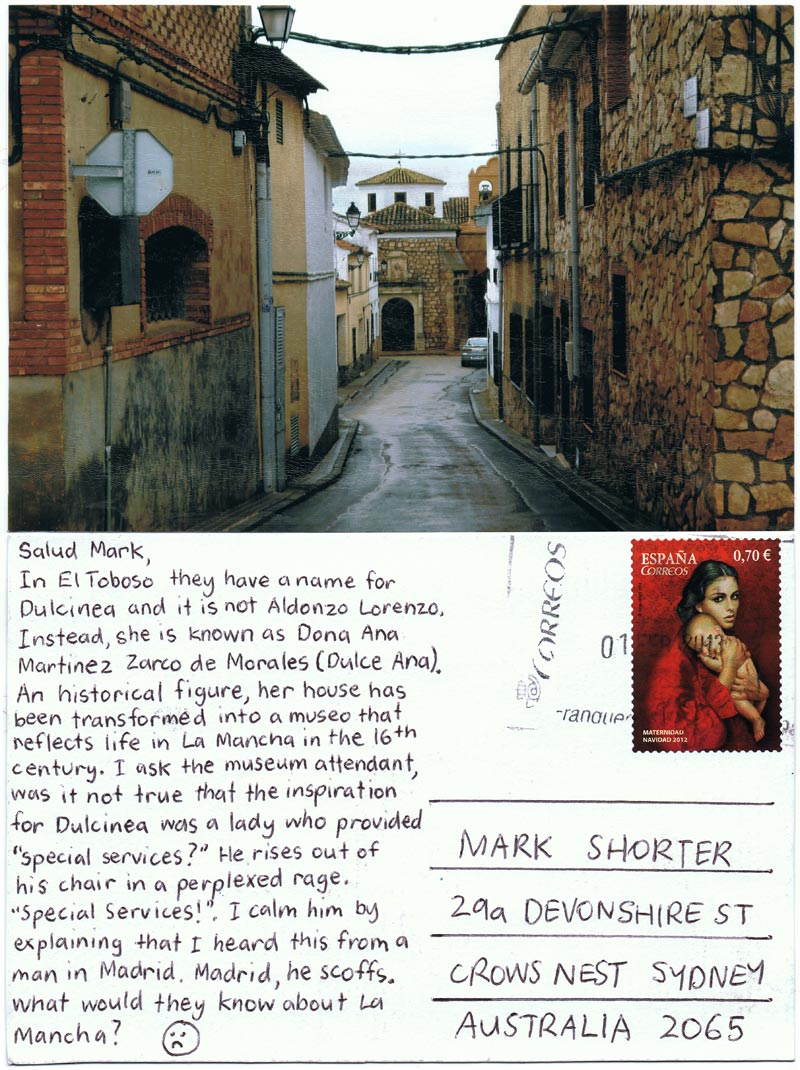 Salud Mark,
In El Toboso they have a name for
Dulcinea and it is not Aldonzo Lorenzo.
Instead, she is known as Dona Ana
Martinez Zarco de Morales (Dulce Ana).
An historical figure, her house has
been transformed into a museo that
reflects life in La Mancha in the 16th
century. I ask the museum attendant,
was it not true that the inspiration
for Dulcinea was a lady who provided
"special services?" He rises out of
his chair in a perplexed rage.
"Special Services!". I calm him by
explaining that I heard this from a
man in Madrid. Madrid, he scoffs.
What would they know about La
Mancha?
CORREOS
01
ESPAÑA 0,70 €
CORREOS
MATERNIDAD
NAVIDAD 2012
MARK SHORTER
29a DEVONSHIRE ST
CROWS NEST SYDNEY
AUSTRALIA 2065